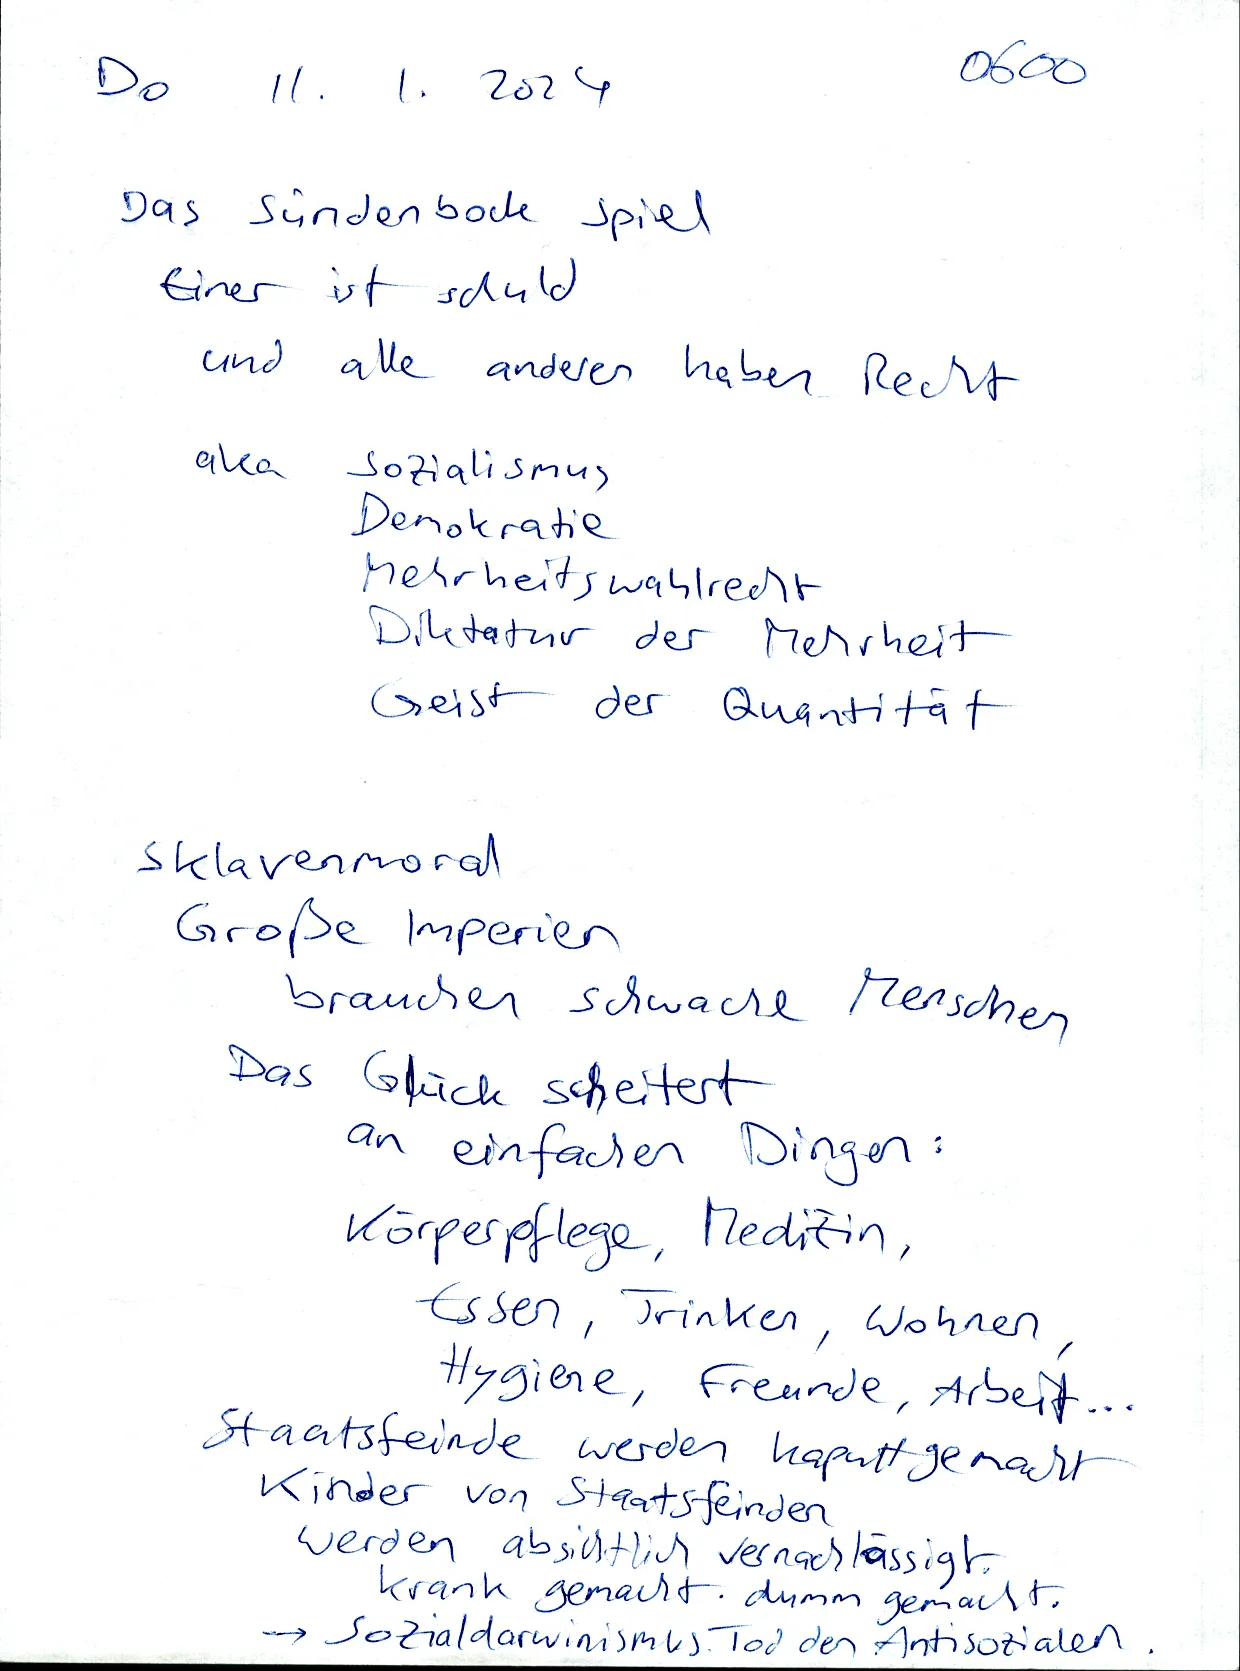 Do 11. 1. 2024 0600
Das Sündenbock spiel
Einer ist schuld
und alle anderen haben Recht
aka Sozialismus
Demokratie
Mehrheitswahlrecht
Diktatur der Mehrheit
Geist der Quantität
Sklavenmoral
Große Imperien
brauchen schwache Menschen
Das Glück scheitert
an einfachen Dingen:
Körperpflege, Medizin,
Essen, Trinken, Wohnen,
Hygiene, Freunde, Arbeit...
Staatsfeinde werden kaputt gemacht
Kinder von Staatsfeinden
werden absichtlich vernachlässigt.
krank gemacht. dumm gemacht.
→ Sozialdarwinismus. Tod den Antisozialen.